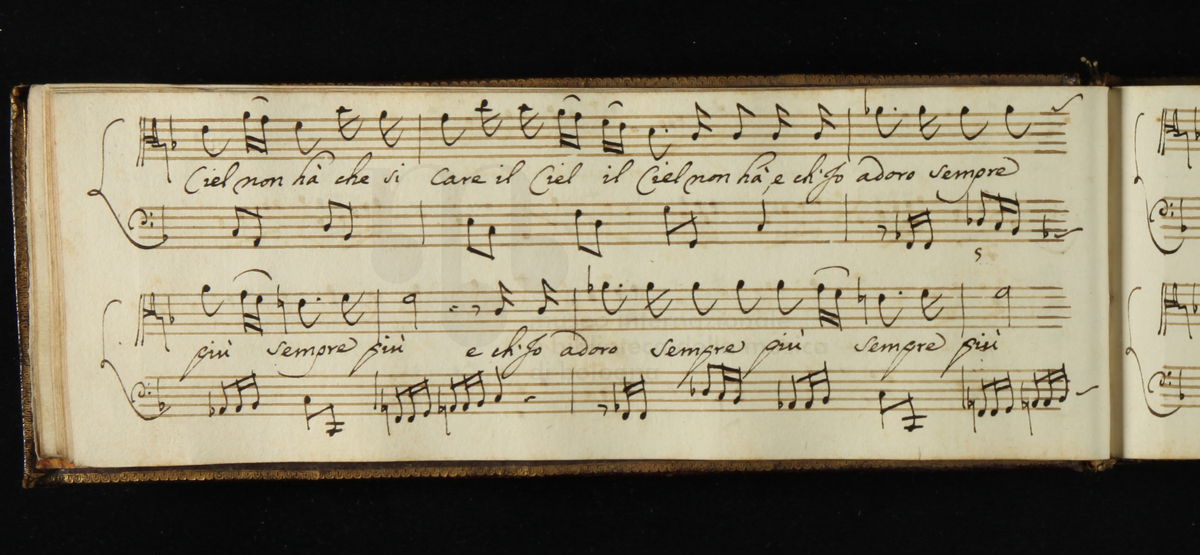 Ciel non hà che si care il Ciel il Ciel non hà, e ch'Io adoro sempre
5
più sempre più e ch'Io adoro sempre più sempre più